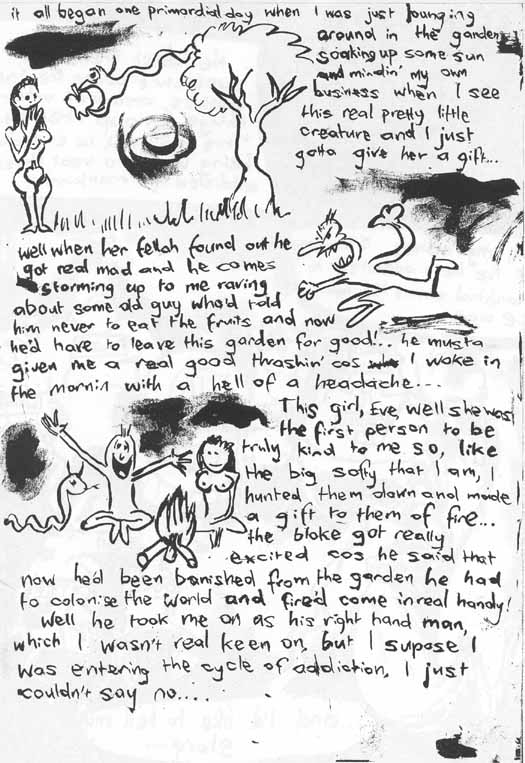 it all began one primordial day when I was just lounging
around in the garden
soaking up some sun
and mindin' my own
business when I see
this real pretty little
creature and I just
gotta give her a gift...
well when her fellah found out he
got real mad and he comes
storming up to me raving
about some old guy who'd told
him never to eat the fruits and now
he'd have to leave this garden for good!.. he musta
given me a real good thrashin' cos I woke in
the mornin with a hell of a headache...
This girl, Eve, well she was
the first person to be
truly kind to me so, like
the big softy that I am, I
hunted them down and made
a gift to them of fire...
the bloke got really
excited cos he said that
now he'd been banished from the garden he had
to colonise the world and fire'd come in real handy!
Well he took me on as his right hand man,
which I wasn't real keen on, but I supose I
was entering the cycle of addiction, I just
couldn't say no....